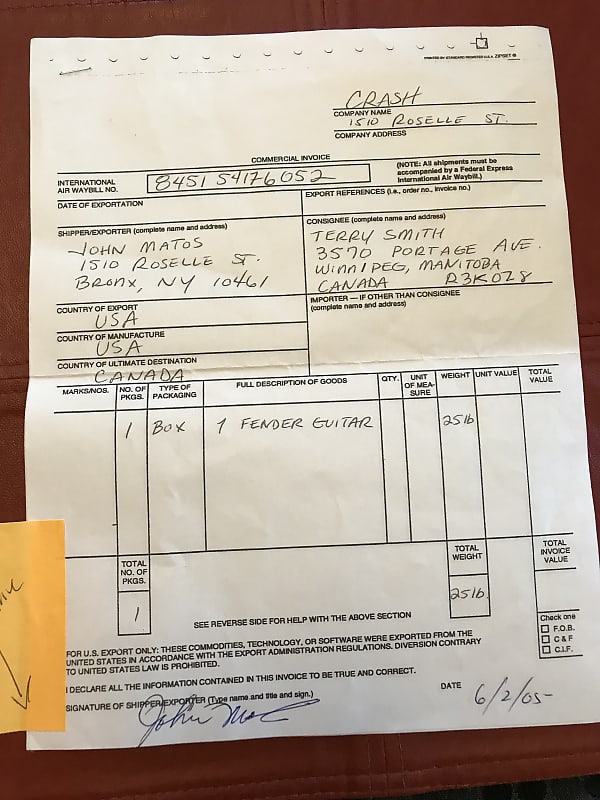 PRINTED BY STANDARD REGISTER U.S.A. ZIPSET ®
CRASH
COMPANY NAME
1510 ROSELLE ST.
COMPANY ADDRESS
COMMERCIAL INVOICE
INTERNATIONAL
AIR WAYBILL NO.
8451 5417 6052
(NOTE: All shipments must be
accompanied by a Federal Express
International Air Waybill.)
DATE OF EXPORTATION
EXPORT REFERENCES (i.e., order no., invoice no.)
SHIPPER/EXPORTER (complete name and address)
JOHN MATOS
1510 ROSELLE ST.
BRONX, NY 10461
CONSIGNEE (complete name and address)
TERRY SMITH
3570 PORTAGE AVE.
WINNIPEG, MANITOBA
CANADA R3K0Z8
COUNTRY OF EXPORT
USA
COUNTRY OF MANUFACTURE
USA
COUNTRY OF ULTIMATE DESTINATION
CANADA
IMPORTER — IF OTHER THAN CONSIGNEE
(complete name and address)
MARKS/NOS. NO. OF PKGS. TYPE OF PACKAGING FULL DESCRIPTION OF GOODS QTY. UNIT OF MEA- SURE WEIGHT UNIT VALUE TOTAL VALUE
1 BOX 1 FENDER GUITAR 25lb
TOTAL NO. OF PKGS. TOTAL WEIGHT TOTAL INVOICE VALUE
1 25lb.
SEE REVERSE SIDE FOR HELP WITH THE ABOVE SECTION
Check one
F.O.B.
C & F
C.I.F.
FOR U.S. EXPORT ONLY: THESE COMMODITIES, TECHNOLOGY, OR SOFTWARE WERE EXPORTED FROM THE
UNITED STATES IN ACCORDANCE WITH THE EXPORT ADMINISTRATION REGULATIONS. DIVERSION CONTRARY
TO UNITED STATES LAW IS PROHIBITED.
I DECLARE ALL THE INFORMATION CONTAINED IN THIS INVOICE TO BE TRUE AND CORRECT.
SIGNATURE OF SHIPPER/EXPORTER (Type name and title and sign.)
John
DATE 6/2/05